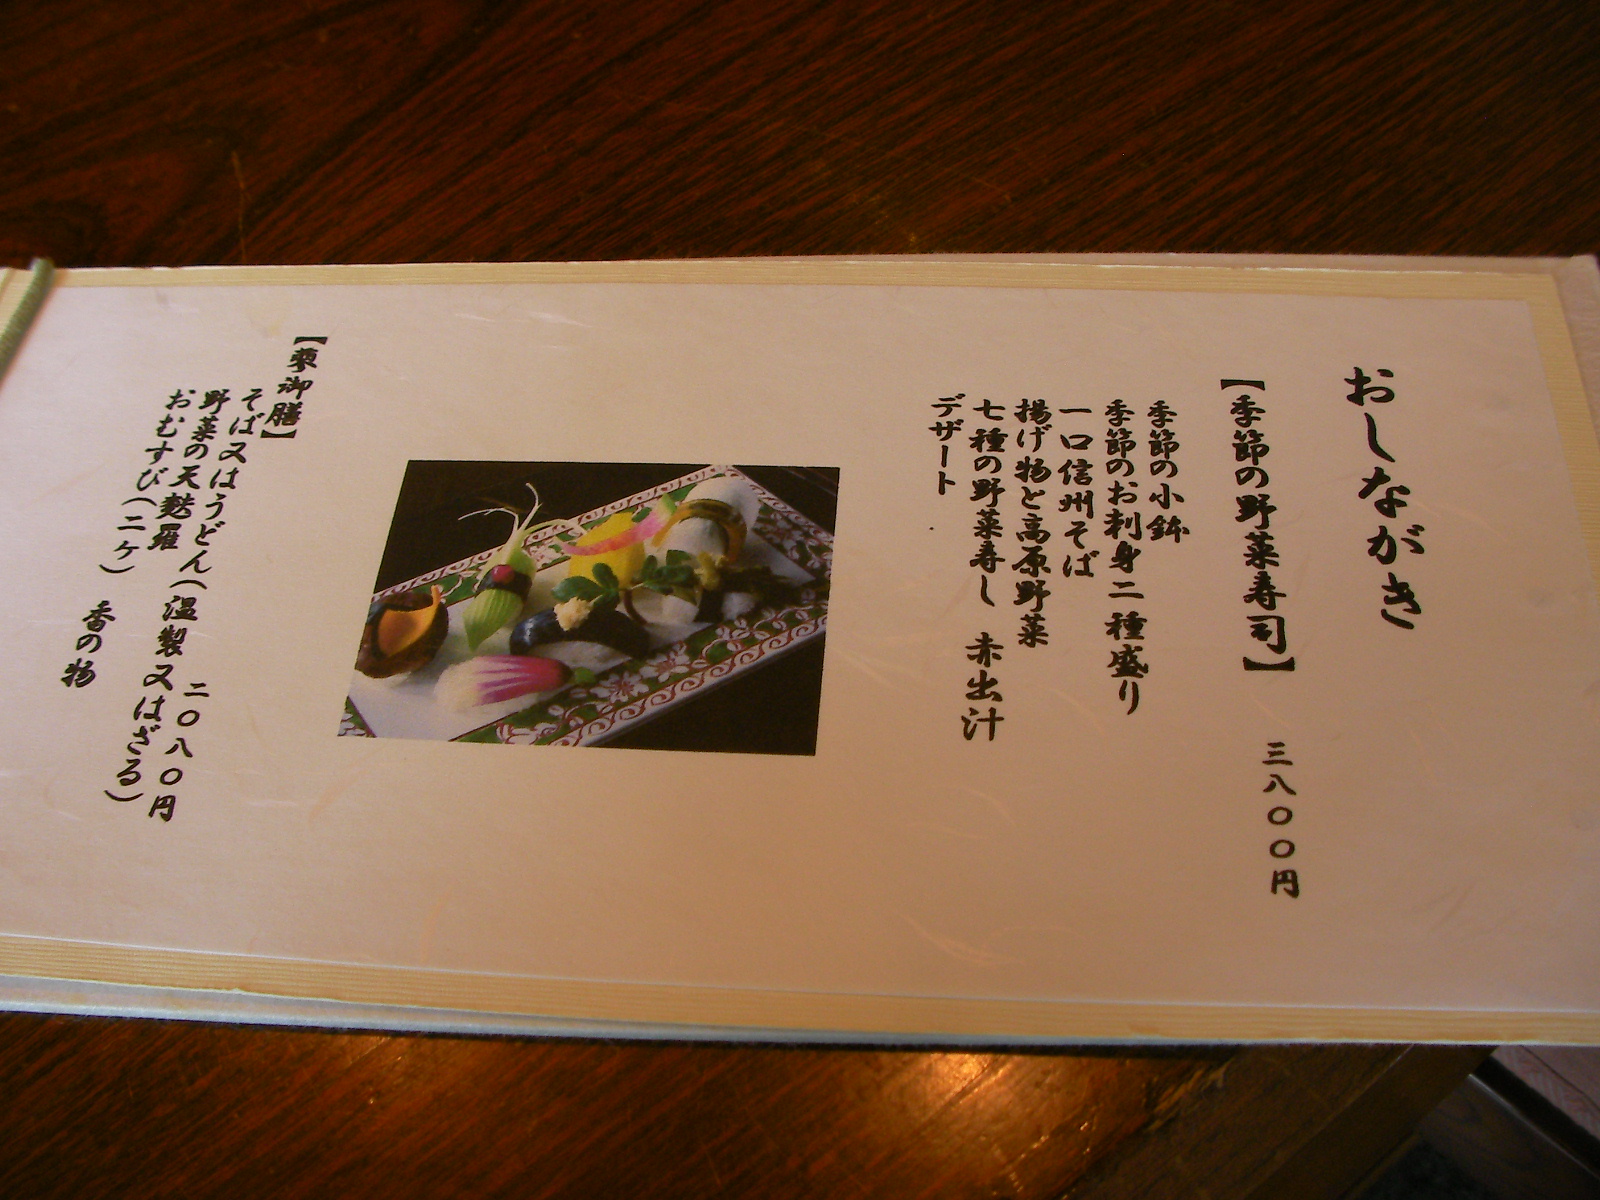 おしながき
【季節の野菜寿司】 三八〇〇円
季節の小鉢
季節のお刺身二種盛り
一口信州そば
揚げ物と高原野菜
七種の野菜寿し 赤出汁
デザート
御膳】 二〇八〇円
そば又はうどん(温製又はざる)
野菜の天麩羅
おむすび(二ケ) 香の物